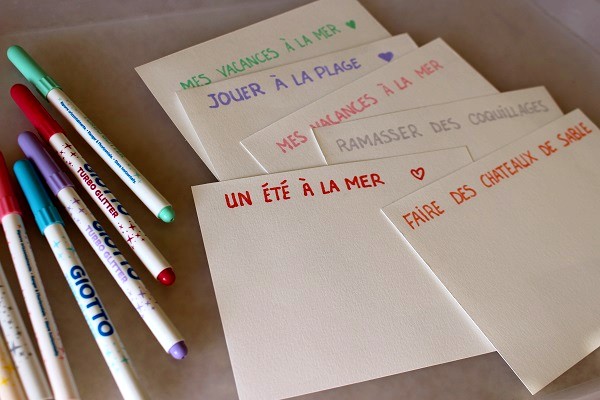 MES VACANCES À LA MER
JOUER À LA PLAGE
MES VACANCES À LA MER
RAMASSER DES COQUILLAGES
UN ÉTÉ À LA MER
FAIRE DES CHATEAUX DE SABLE
GIOTTO
TURBO GLITTER
GIOTTO
TURBO GLITTER
GIOTTO